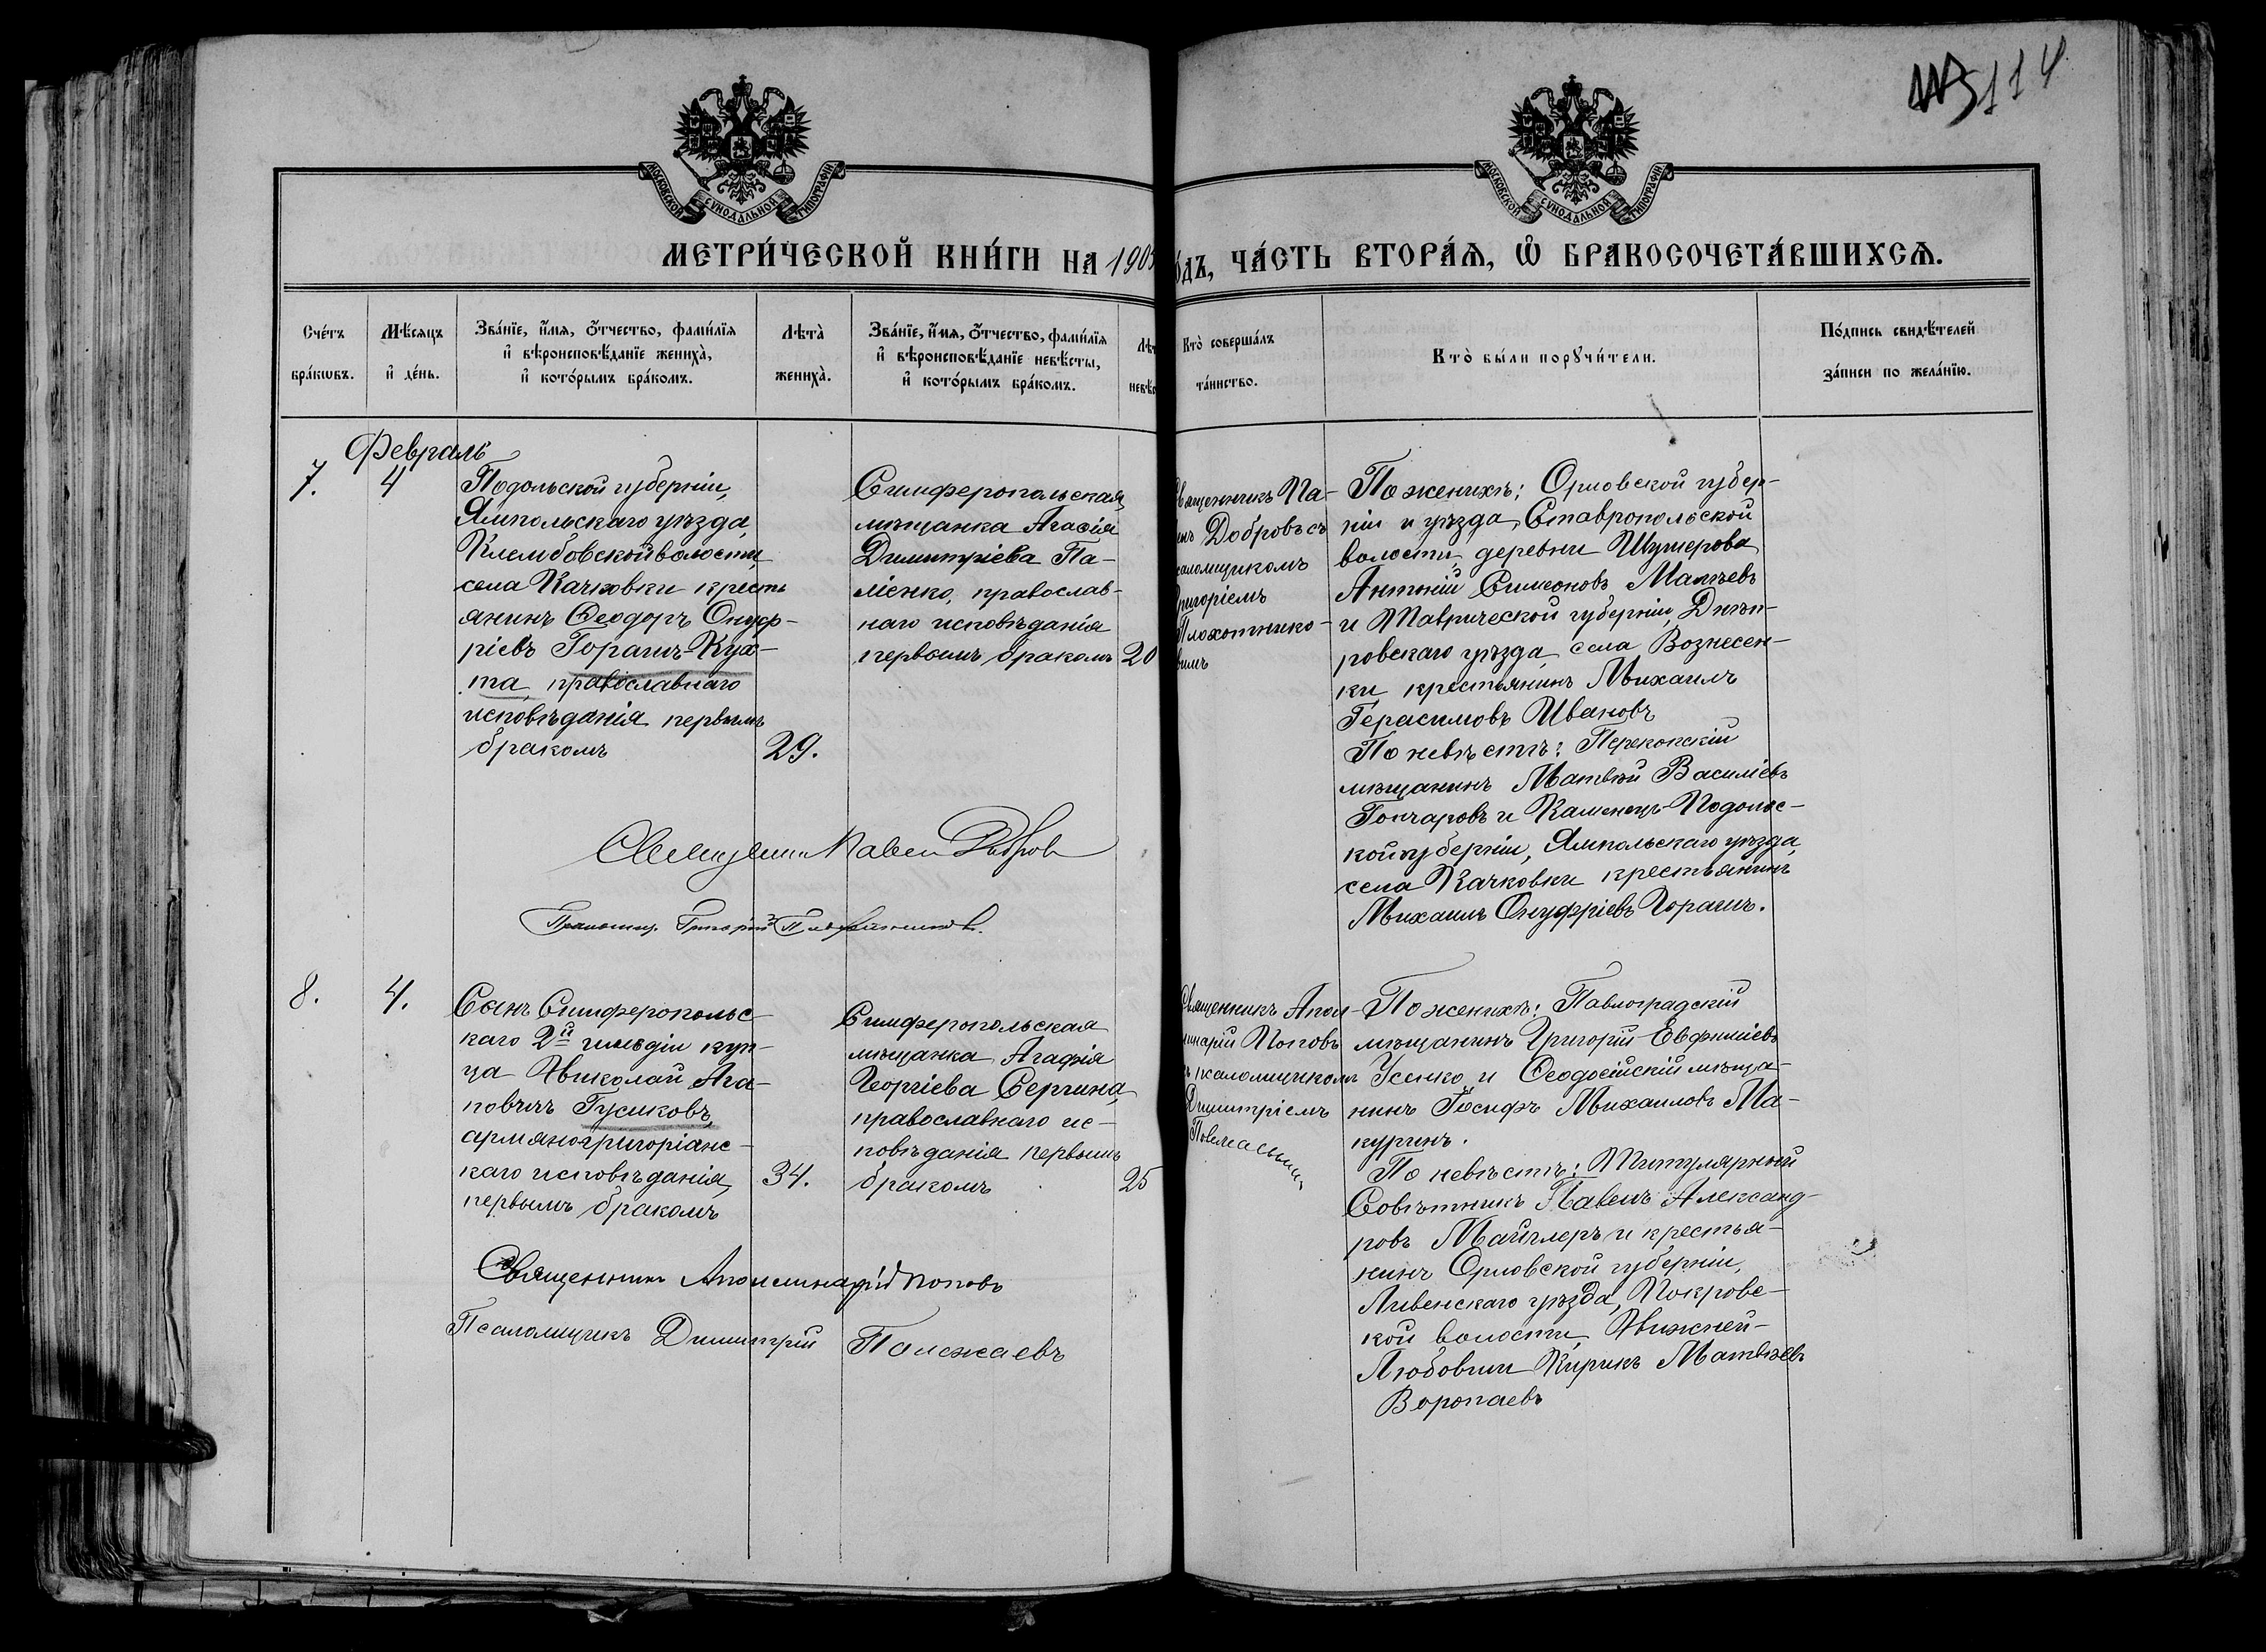 114
МОСКОВСКОЙ СУНОДАЛЬНОЙ ТИПОГРАФІИ
МОСКОВСКОЙ СУНОДАЛЬНОЙ ТИПОГРАФІИ
МЕТРИ́ЧЕСКОЙ КНИ́ГИ НА 190
ДЪ, ЧА́СТЬ ВТОРА́Я, Ѽ БРАКОСОЧЕТА́ВШИХСЯ.
Сче́тъ
бра́кѡвъ.
Мѣ́сяцъ
и҆ де́нь.
Зва́нїе, и҆́мя, ѻ҆́тчество, фамѝлїя
и҆ вѣроисповѣ́данїе женихà,
и҆ кото́рымъ бра́комъ.
Лѣтà
женихà.
Зва́нїе, и҆́мя, ѻ҆́тчество, фамѝлїя
и҆ вѣроисповѣ́данїе невѣ́сты,
и҆ кото́рымъ бра́комъ.
Лѣт
невѣс
Кто̀ соверша́лъ
та́инство.
Кто̀ бы́ли порꙋчи́тели.
По́дпись свидѣ́телей
за́писи по жела́нїю.
Февраль
7.
4
Подольской губерніи,
Ямпольскаго уѣзда,
Клембовской волости,
села Качковки кресть
янинъ Ѳеодоръ Онуф-
ріевъ Горачъ-Кух-
та, православнаго
исповѣданія первымъ
бракомъ
29.
Симферопольская
мѣщанка Агаѳія
Димитріева Па-
ліенко, православ-
наго исповѣданія
первымъ бракомъ
20
вященникъ Па-
елъ Добровъ съ
саломщикомъ
ригоріемъ
Плохотнико-
вымъ
По женихѣ: Орловской губер-
ніи и уѣзда, Ставропольской
волости, деревни Шумерова
Антоній Симеоновъ Малѣевъ
и Таврической губерніи, Днѣп-
ровскаго уѣзда села Вознесен-
ки крестьянинъ Михаилъ
Герасимовъ Ивановъ
По невѣстѣ: Перекопскій
мѣщанинъ Матвѣй Василіевъ
Гончаровъ и Каменецъ-Подольс-
кой губерніи, Ямпольскаго уѣзда,
села Качковки крестьянинъ
Михаилъ Онуфріевъ Горачъ.
Священник Павел Добров
Псаломщ. Григорій Плохотников.
8.
4.
Сынъ Симферопольс-
каго 2й гильдіи куп-
ца Николай Ага-
повичъ Гусиковъ,
армяногригоріанс-
каго исповѣданія,
первымъ бракомъ
34.
Симферопольская
мѣщанка Агафія
Георгіева Сергина,
православнаго ис-
повѣданія первымъ
бракомъ
25
Священникъ Апол-
инарій Поповъ
ъ псаломщикомъ
Димитріемъ
По женихѣ: Павлоградскій
мѣщанинъ Григорій Евфиміевъ
Усенко и Ѳеодосійскій мѣща-
нинъ Іосифъ Михаиловъ Ма-
кугинъ.
По невѣстѣ: Титулярный
Совѣтникъ Павелъ Александ-
ровъ Майглеръ и крестья-
нинъ Орловской губерніи,
Ливенскаго уѣзда, Покровс-
кой волости, Нижней-
Любовши Кирикъ Матвѣевъ
Воропаевъ
Священникъ Аполлинарій Поповъ
Псаломщикъ Димитрій Полежаевъ